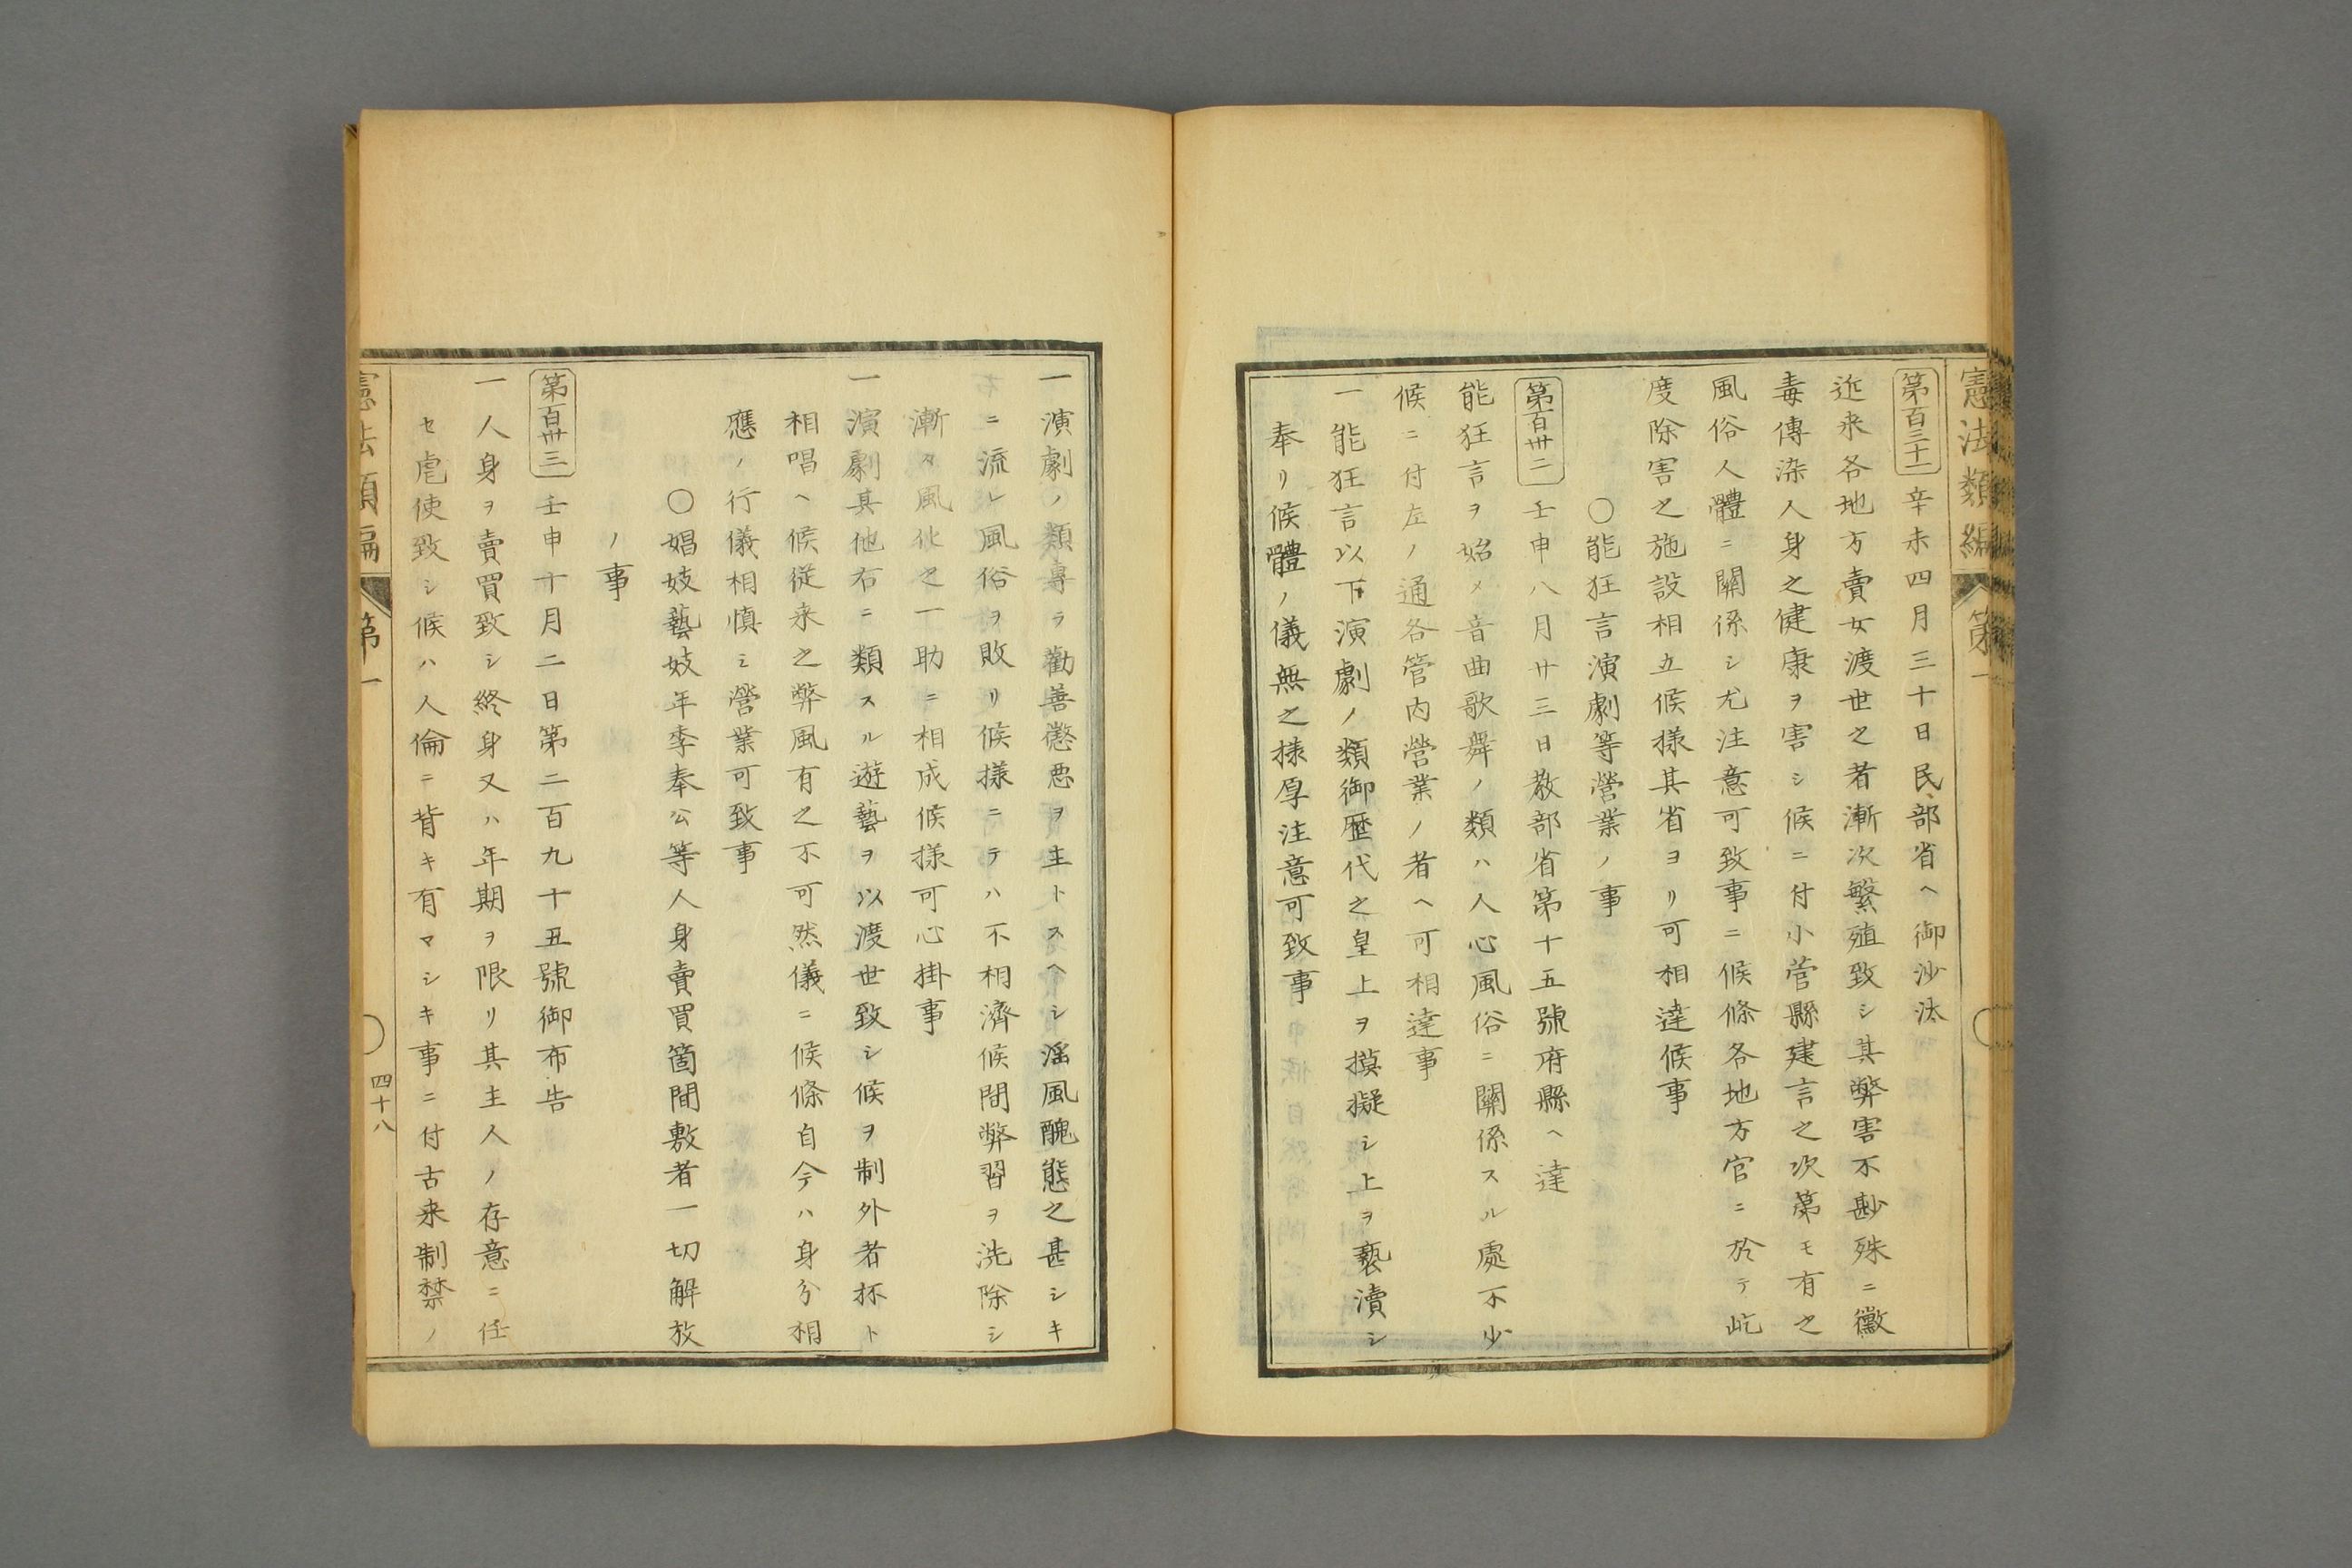 憲法類編 第一
第百三十一 辛未四月三十日民部省ヘ御沙汰
近来各地方賣女渡世之者漸次繁殖致シ其弊害不尠殊ニ黴
毒傳染人身之健康ヲ害シ候ニ付小菅縣建言之次第モ有之
風俗人體ニ關係シ尤注意可致事ニ候條各地方官ニ於テ屹
度除害之施設相立候様其省ヨリ可相達候事
〇能狂言演劇等營業ノ事
第百卅二 壬申八月廿三日敎部省第十五號府縣ヘ達
能狂言ヲ始メ音曲歌舞ノ類ハ人心風俗ニ關係スル處不少
候ニ付左ノ通各管内營業ノ者ヘ可相達事
一能狂言以下演劇ノ類御歴代之皇上ヲ摸擬シ上ヲ褻瀆シ
奉リ候體ノ儀無之様厚注意可致事
一演劇ノ類專ラ勸善懲悪ヲ主トスヘシ淫風醜態之甚シキ
ニ流レ風俗ヲ敗リ候様ニテハ不相濟候間弊習ヲ洗除シ
漸々風化之一助ニ相成候様可心掛事
一演劇其他右ニ類スル遊藝ヲ以渡世致シ候ヲ制外者抔ト
相唱ヘ候従来之弊風有之不可然儀ニ候條自今ハ身分相
應ノ行儀相慎ミ營業可致事
〇娼妓藝妓年季奉公等人身賣買箇間敷者一切解放
ノ事
第百卅三 壬申十月二日第二百九十五號御布告
一人身ヲ賣買致シ終身又ハ年期ヲ限リ其主人ノ存意ニ任
セ虐使致シ候ハ人倫ニ背キ有マシキ事ニ付古来制禁ノ
憲法類編 第一 四十八